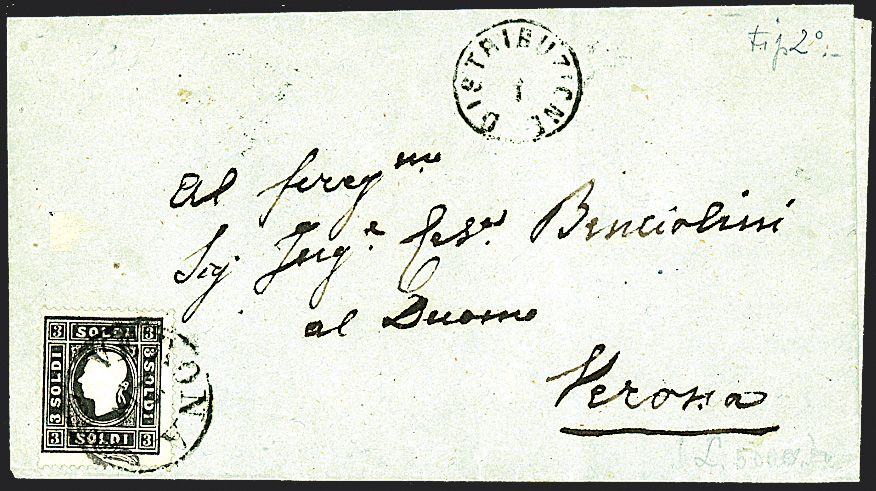 tip 2°.-
DISTRIBUZIONE
1
Al
Sig. Ing.e Ces.e Benciolini
al Duomo
Verona
3 SOLDI 3
3 SOLDI
3 SOLDI
3 SOLDI 3
ONA